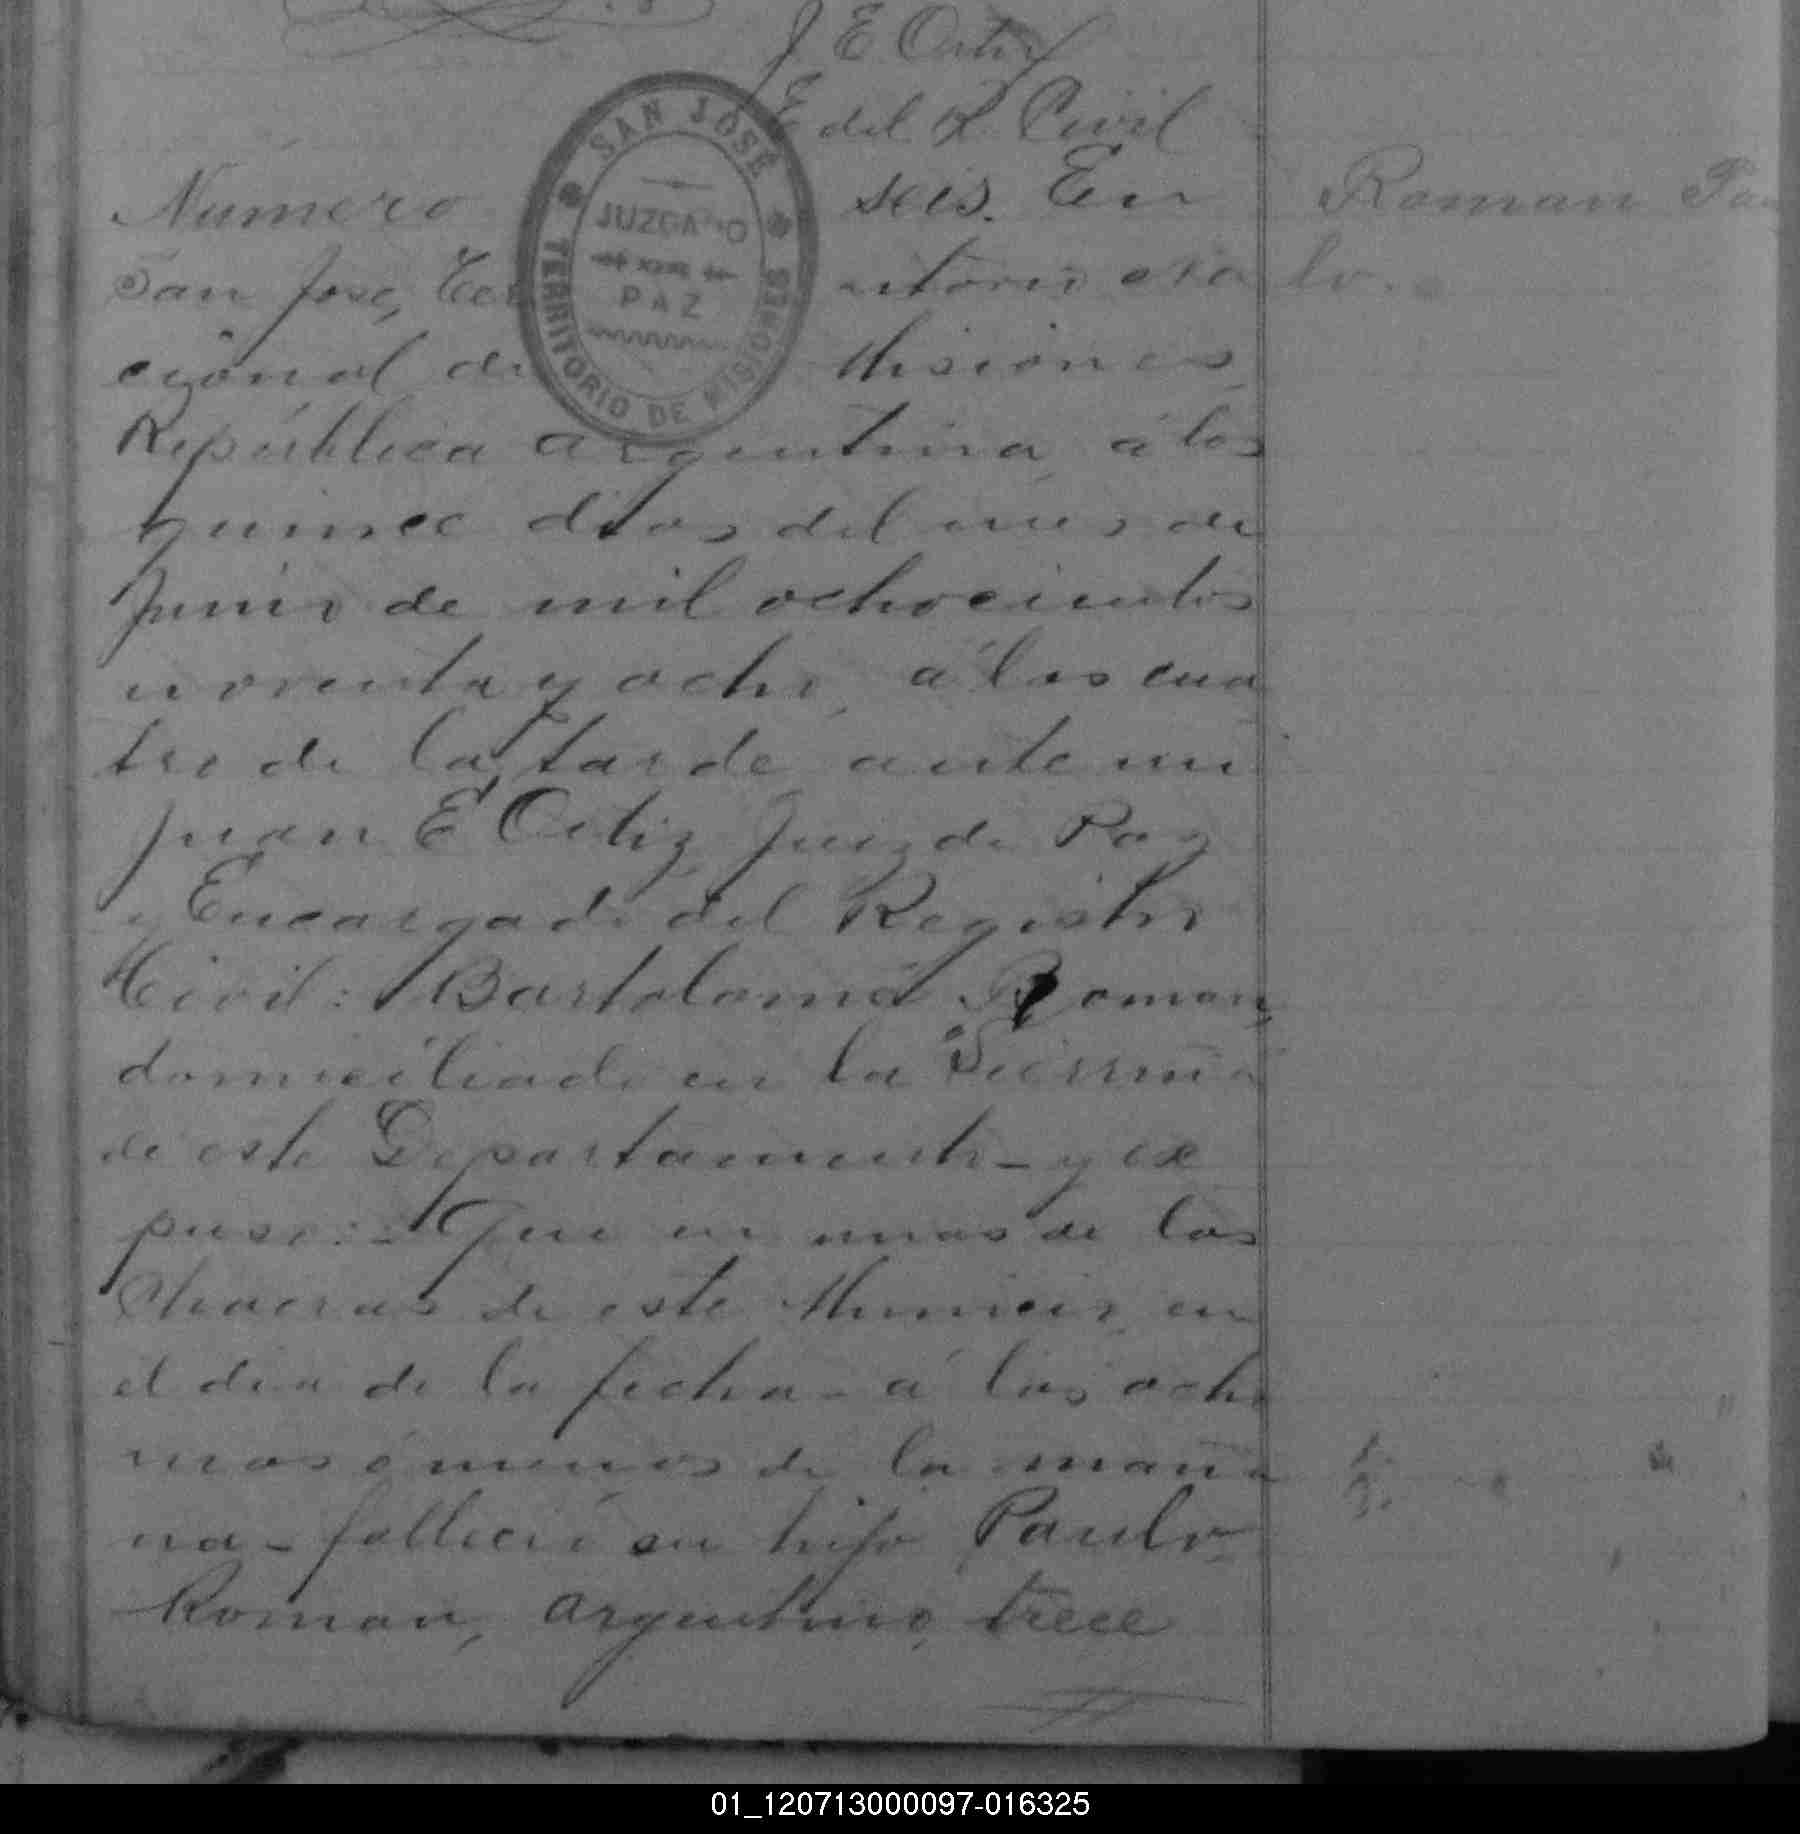 J E Ortiz
E del R. Civil
Número seis. En
San Jose, Territorio Na
cional de Misiones,
República Argentina, á los
quince dias del mes de
Junio de mil ochocientos
noventa y ocho, á las cua
tro de la tarde, ante mi
Juan E Ortiz, Juez de Paz
y Encargado del Registro
Civil: Bartolomé Roman,
domiciliado en la
de este Departamento - y ex
puso: - Que en unas de las
Chacras de este Municio, en
el dia de la fecha - á las ocho
mas ó menos de la maña
na - falleció su hijo Paulo
Roman, argentino, trece
Roman Pau
lo.
SAN JOSÉ
JUZGADO
DE
PAZ
TERRITORIO DE MISIONES
01_120713000097-016325